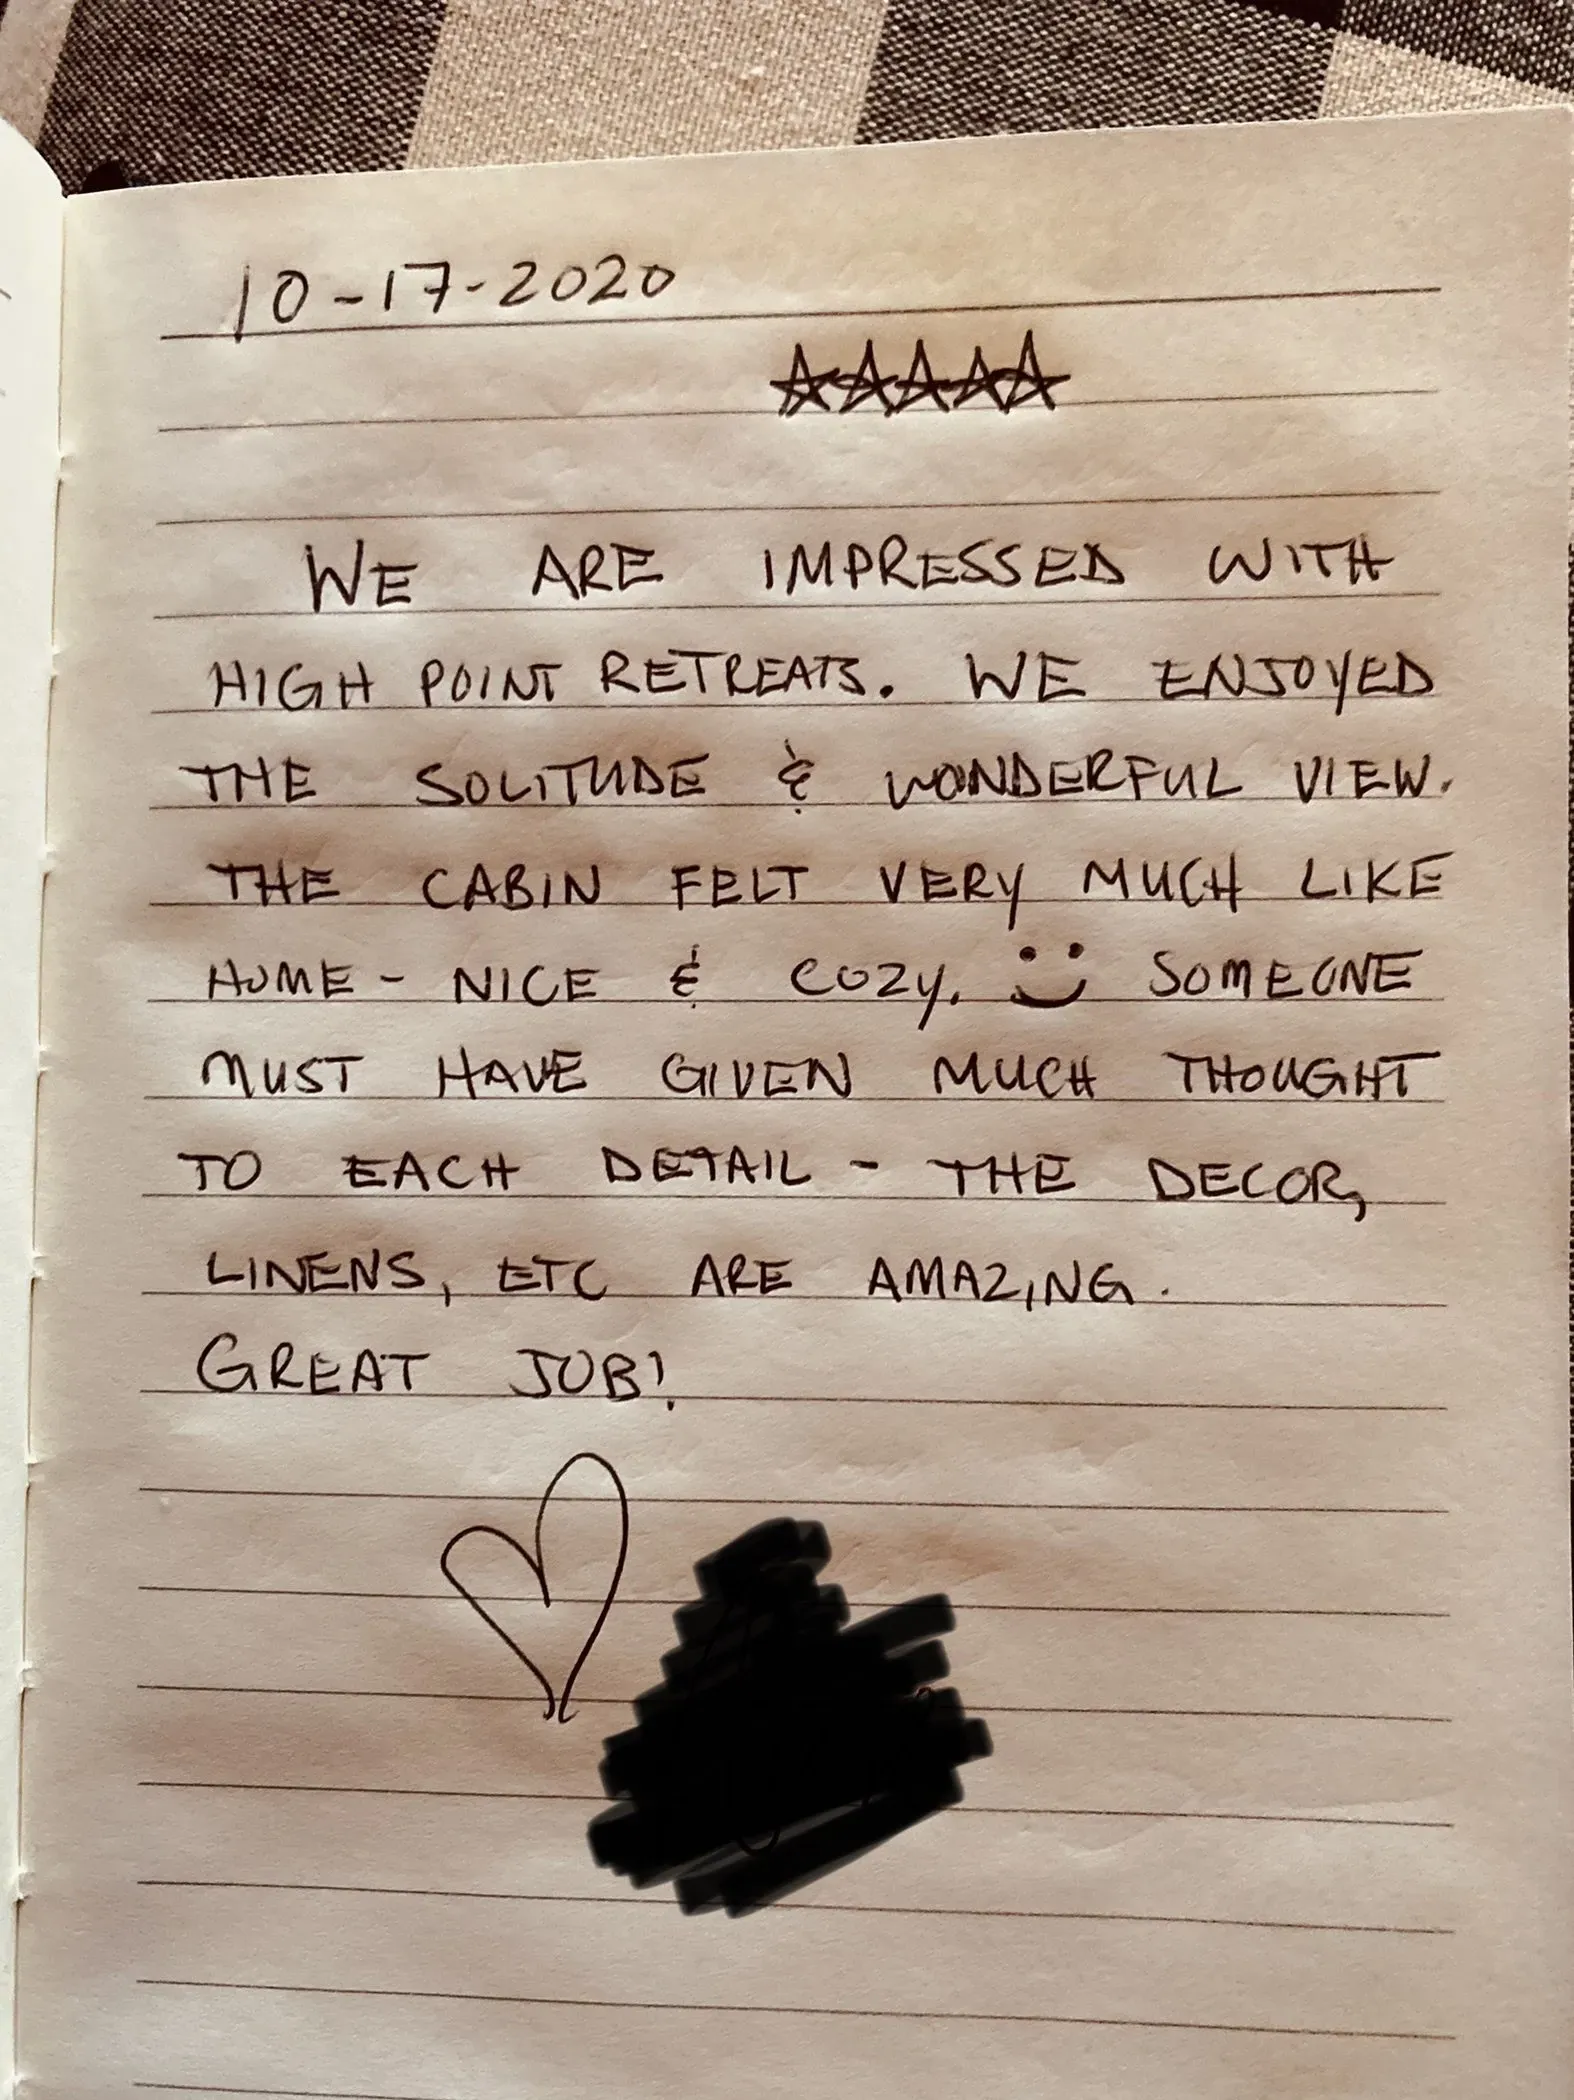 10-17-2020
WE ARE IMPRESSED WITH
HIGH POINT RETREATS. WE ENJOYED
THE SOLITUDE & WONDERFUL VIEW.
THE CABIN FELT VERY MUCH LIKE
HOME - NICE & COZY. SOMEONE
MUST HAVE GIVEN MUCH THOUGHT
TO EACH DETAIL - THE DECOR,
LINENS, ETC ARE AMAZING.
GREAT JOB!